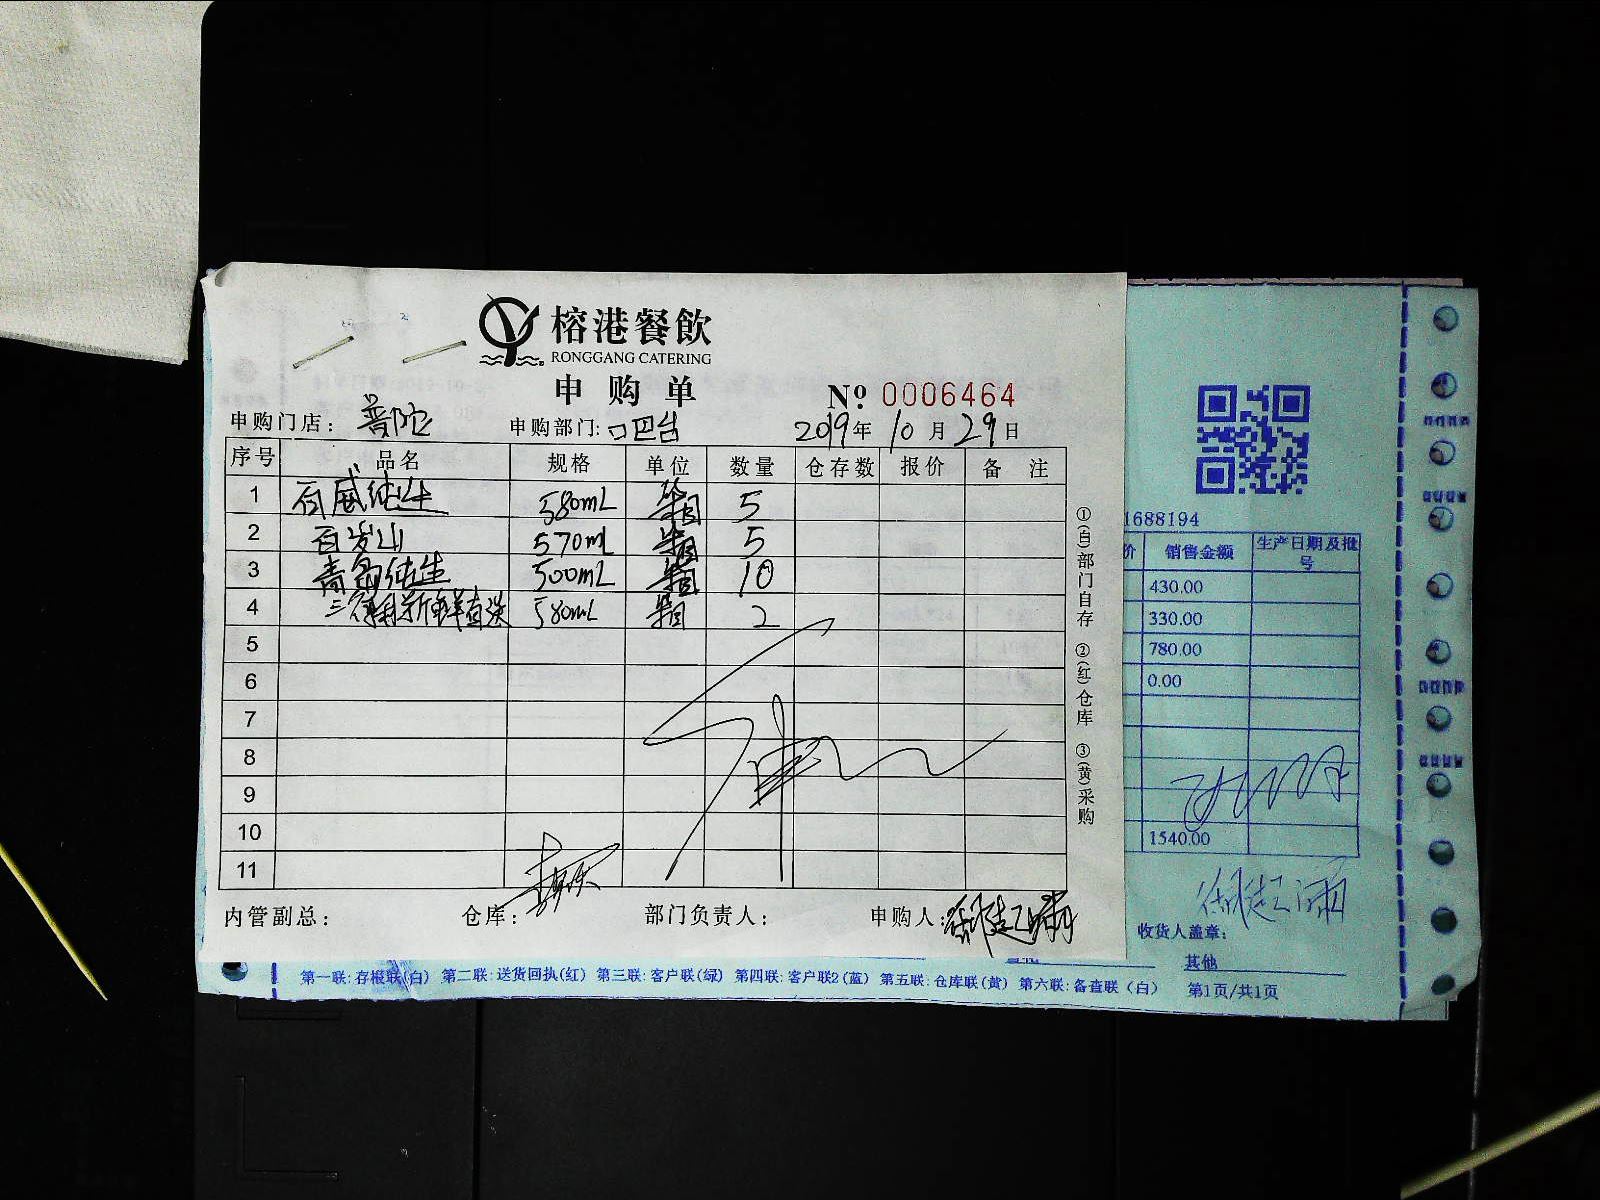 榕港餐飲
RONGGANG CATERING
申购单
№ 0006464
申购门店: 普陀 申购部门: 吧台 2019年10月29日
序号 品名 规格 单位 数量 仓存数 报价 备注
1 百威纯生 580mL 箱 5
2 百岁山 570mL 箱 5
3 青岛纯生 500mL 箱 10
4 三得利新鲜直送 580mL 箱 2
5
6
7
8
9
10
11
内管副总: 仓库: 部门负责人: 申购人:
①(白)部门自存 ②(红)仓库 ③(黄)采购
1688194
价 销售金额 生产日期及批号
430.00
330.00
780.00
0.00
1540.00
收货人盖章:
其他
第一联:存根联(白) 第二联:送货回执(红) 第三联:客户联(绿) 第四联:客户联2(蓝) 第五联:仓库联(黄) 第六联:备查联(白) 第1页/共1页